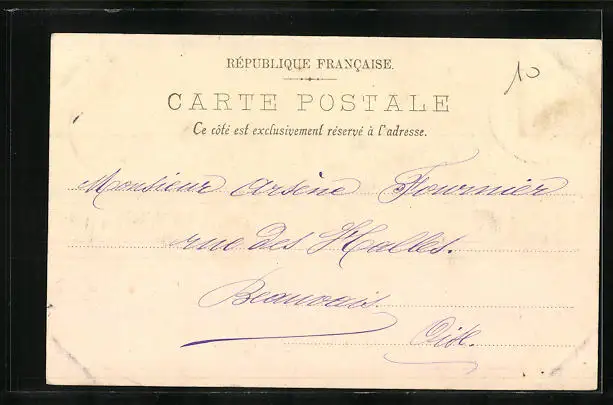 RÉPUBLIQUE FRANÇAISE.
10
CARTE POSTALE
Ce côté est exclusivement réservé à l'adresse.
Monsieur Arsène Fournier
rue des Halles.
Beauvais
Oise.